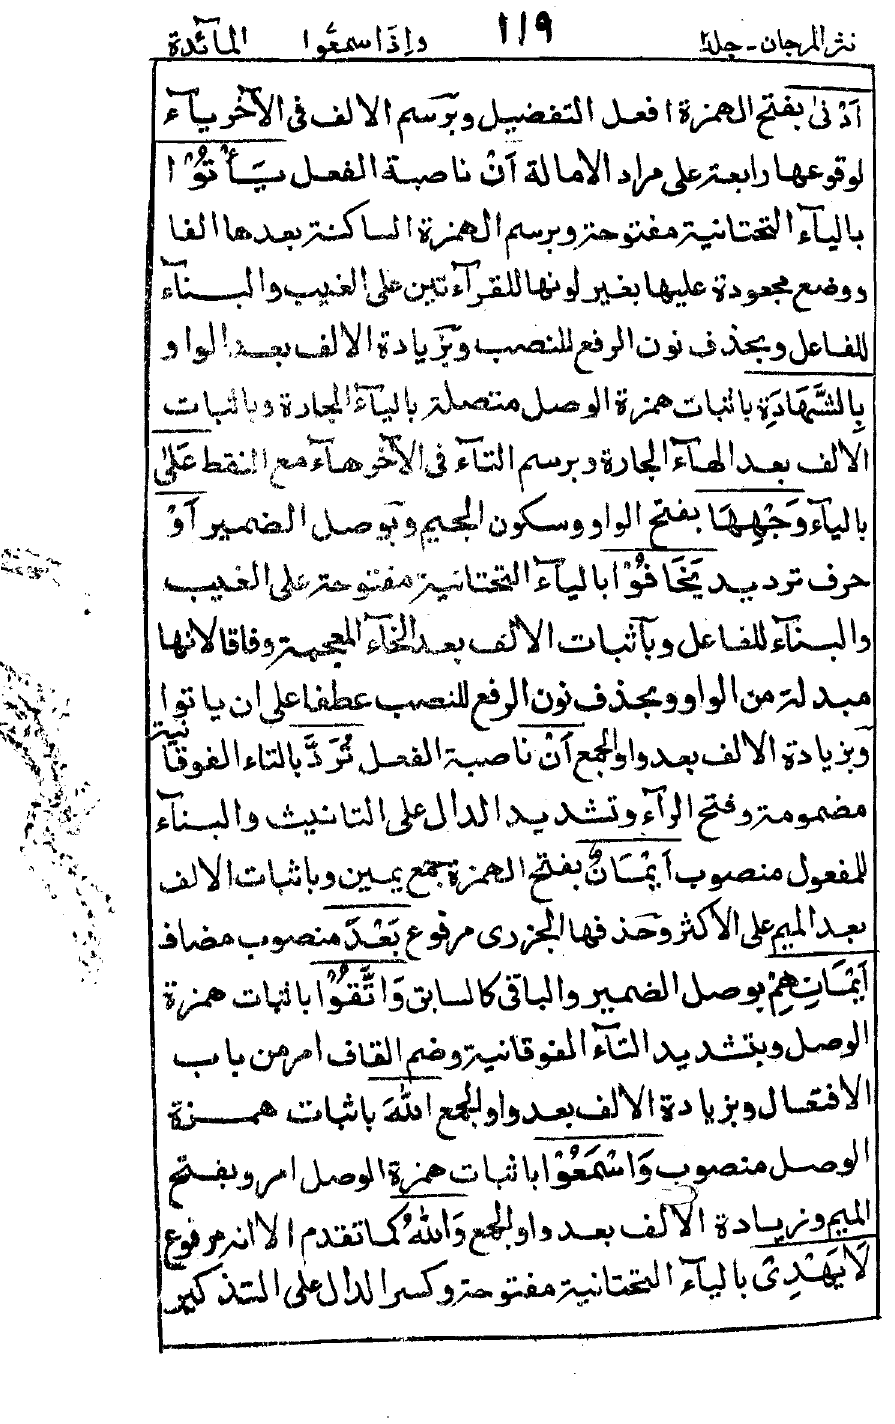 نثر المرجان - جلد ٢ ١١٩ واذا سمعوا المآئدة
اَدْنٰى بفتح الهمزة افعل التفضيل وبرسم الالف فى الآخر يآء
لوقوعها رابعة على مراد الامالة اَنْ ناصبة الفعل يَّأْتُوْا
باليآء التحتانية مفتوحة وبرسم الهمزة الساكنة بعدها الفا
ووضع مجعودة عليها بغير لونها للقرآءتين على الغيب والبنآء
للفاعل وبحذف نون الرفع للنصب وبزيادة الالف بعد الواو
بِالشَّهَادَةِ باثبات همزة الوصل متصلة باليآء الجارة وباثبات
الالف بعد الهآء الجارة وبرسم التآء فى الآخر هآء مع النقط عَلٰى
باليآء وَجْهِهَا بفتح الواو وسكون الجيم وبوصل الضمير اَوْ
حرف ترديد يَخَافُوْا باليآء التحتانية مفتوحة على الغيب
والبنآء للفاعل وبآثبات الالف بعد الخآء المعجمة وفاقا لانها
مبدلة من الواو وبحذف نون الرفع للنصب عطفا على ان ياتوا
وبزيادة الالف بعد واو الجمع اَنْ ناصبة الفعل تُرَدَّ بالتاء الفوقانية
مضمومة وفتح الرآء وتشديد الدال على التانيث والبنآء
للمفعول منصوب اَيْمَانٌ بفتح الهمزة جمع يمين وباثبات الالف
بعد الميم على الاكثر وحذفها الجزرى مرفوع بَعْدَ منصوب مضاف
اَيْمَانِهِمْ بوصل الضمير والباقى كالسابق وَاتَّقُوْا باثبات همزة
الوصل وبتشديد التآء الفوقانية وضم القاف امر من باب
الافتعال وبزيادة الالف بعد واو الجمع اللهَ باثبات همزة
الوصل منصوب وَاسْمَعُوْا باثبات همزة الوصل امر وبفتح
الميم وزيادة الالف بعد واو الجمع وَاللهُ كما تقدم الا انه مرفوع
لَا يَهْدِى باليآء التحتانية مفتوحة وكسر الدال على التذكير